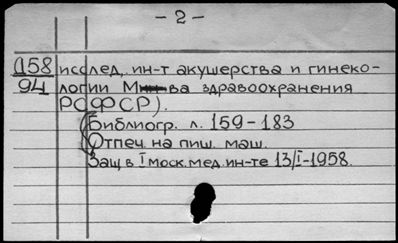 - 2 -
(158 исслед. ин-т акушерства и гинеко-
94 логии М-ва здравоохранения
РСФСР).
(Библиогр. л. 159-183
Отпеч. на пиш. маш.
Защ. в I моск. мед. ин-те 13/I-1958.